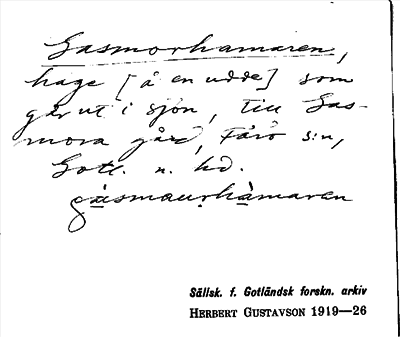 Gasmorhamaren,
hage [å en udde] som
går ut i sjön, till Gas-
mora gård, Fårö s:n,
Gotl. n. hd.
gàsmaurhàmaren
Sällsk. f. Gotländsk forskn. arkiv
HERBERT GUSTAVSON 1919—26